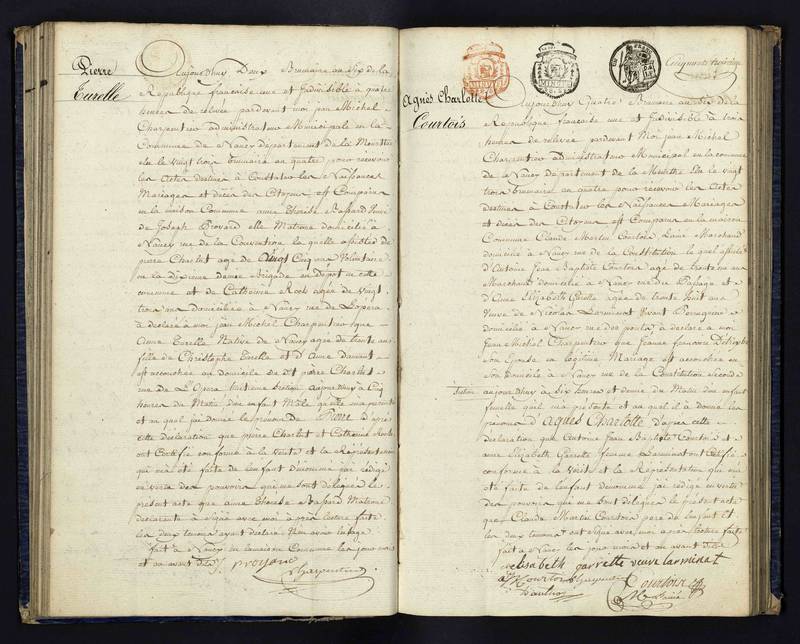 Pierre
Turelle
Aujourdhuy Deux Brumaire an Six de la
Republique francaise une et Indivisible à quatre
heures de relevée pardevant moi jean Michel
Charpentier administrateur Municipal en la
Commune de Nancy département de la Meurthe
élu le vingt trois brumaire an quatre pour recevoir
les actes destinés à Constater les Naissances
Mariages et décès des Citoyens est Comparue
en la maison Commune anne thérèse Bassard femme
de Joseph elle Matrone domiciliée à
Nancy rue de la laquelle assistée de
pierre Charlot age de Vingt Cinq ans Volontaire
en la Dixieme demie Brigade en Dépot en cette
commune et de Catherine Rock agée de vingt
trois ans domiciliée à Nancy rue de Lopera
à déclaré à moi jean Michel Charpentier que
Anne Turelle Native de Nancy agée de trente ans
fille de Christophe Turelle et D'Anne
est accouchée au domicile de dt père Charlot
rue de L'Opera huitieme Section aujourdhuy à Cinq
heures du Matin d'un enfant Mâle quelle ma présenté
et au quel j'ai donné le prénom De Pierre D'après
cette déclaration que pierre Charlot et Catherine Rock
ont Certifié conforme à la Vérité et la Représentation
qui ma été faite de lenfant dénommé j'ai rédigé
en vertu des pouvoirs qui me sont délégués le
présent acte que anne thérèse Bassard Matrone
déclarante à signé avec moi après lecture faite
les deux temoins ayant déclaré
fait à Nancy en la maison Commune les jour mois
et an avant dits
Charpentier
Agnès Charlotte
Courtois
Aujourdhuy Quatre Brumaire an Six de la
République francaise une et Indivisible à trois
heures de relevée pardevant Moi jean Michel
Charpentier administrateur Municipal en la commune
de Nancy département de la Meurthe Elu le vingt
trois brumaire an quatre pour recevoir les Actes
destinés à Constater les Naissances Mariages
et décès des Citoyens est Comparu en la maison
Commune Claude Martin Courtois Marchand
domicilié à Nancy rue de la Constitution lequel assisté
d'Antoine Jean Baptiste Courtois agé de trente
Marchand domicilié à Nancy rue du Passage et
d'Anne Elizabeth Garette agée de trente huit ans
Veuve de Nicolas Larminat Vivant
domiciliée à Nancy rue des ponts à déclaré à moi
Jean Michel Charpentier que Jeanne francoise
son Epouse en légitime Mariage est accouchée en
son domicile à Nancy rue de la Constitution Seconde
Section aujourdhuy à Six heures et demie du Matin d'un enfant
femelle quil ma présenté et au quel il à donné les
prénoms d'Agnès Charlotte d'après cette
déclaration que Antoine Jean Baptiste Courtois et
anne Elizabeth Garrette femme Larminat ont Certifié
conforme à la Vérité et la Représentation qui ma
été faite de lenfant dénommé j'ai rédigé en vertu
des pouvoirs qui me sont délégués le présent acte
que Claude Martin Courtois pere de lenfant et
les deux temoins ont signé avec moi après lecture faite
fait à Nancy les jour mois et an avant dits
elisabeth garrette veuve larminat
Charpentier
Courtois